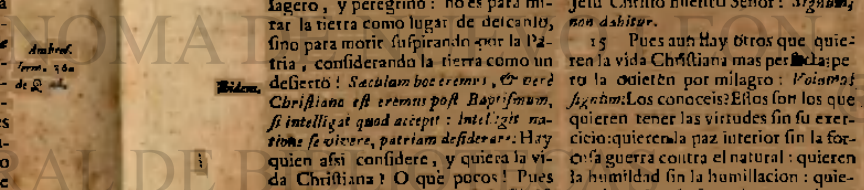 Ambros.
serm.
de
Ibidem.
sagero, y peregrino: no es para mi-
rar la tierra como lugar de descanso,
sino para morir suspirando por la Pa-
tria, considerando la tierra como un
desierto! Sæculum hoc eremus, & verè
Christiano est eremus post Baptismum,
si intelligat quod accepit: Intelligit na-
se vivere, patriam desiderare: Hay
quien assi considere, y quiera la vi-
da Christiana? O què pocos! Pues
Jesu Christo nuestro Señor: Signum,
non dabitur.
15 Pues aun Hay otros que quie-
ren la vida Christiana mas
ro la quieren por milagro: Volumus
signum: Los conoceis? Estos son los que
quieren tener las virtudes sin su exer-
cicio: quieren la paz interior sin la for-
çosa guerra contra el natural: quieren
la humildad sin la humillacion: quie-